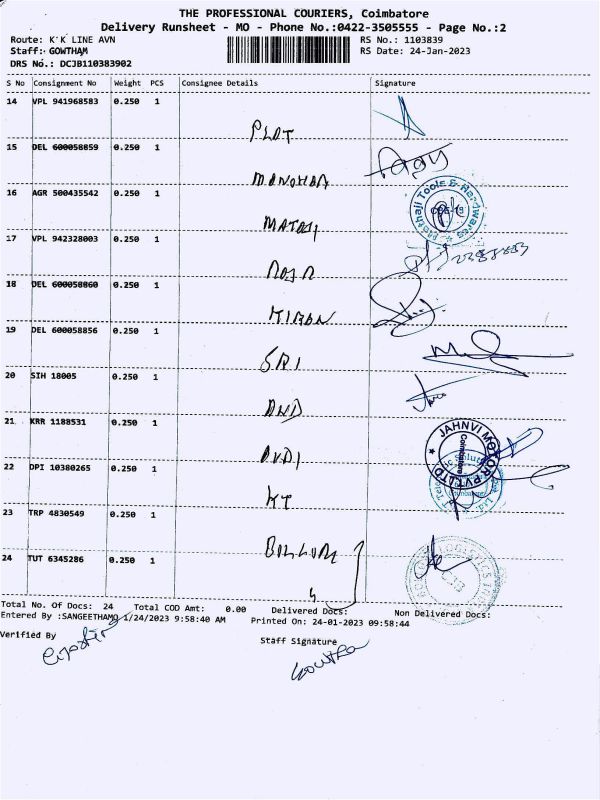 THE PROFESSIONAL COURIERS, Coimbatore
Delivery Runsheet - MO - Phone No.:0422-3505555 - Page No.:2
Route: K K LINE AVN RS No.: 1103839
Staff: GOWTHAM RS Date: 24-Jan-2023
DRS No.: DCJB110383902
S No Consignment No Weight PCS Consignee Details Signature
14 VPL 941968583 0.250 1
PLOT
15 DEL 600058859 0.250 1
MANOHAR
16 AGR 500435542 0.250 1
MATAJI
Mathaji Tools & Hardwares
17 VPL 942328003 0.250 1
18 DEL 600058860 0.250 1
KIRAN
19 DEL 600058856 0.250 1
SRI
20 SIH 18005 0.250 1
AND
21 KRR 1188531 0.250 1
JAHNVI MOTOR PVT LTD
Coimbatore
AVDI
22 DPI 10380265 0.250 1
KT
23 TRP 4830549 0.250 1
24 TUT 6345286 0.250 1
Total No. Of Docs: 24 Total COD Amt: 0.00 Delivered Docs: Non Delivered Docs:
Entered By :SANGEETHAMO 1/24/2023 9:58:40 AM Printed On: 24-01-2023 09:58:44
Verified By Staff Signature
Gowtham